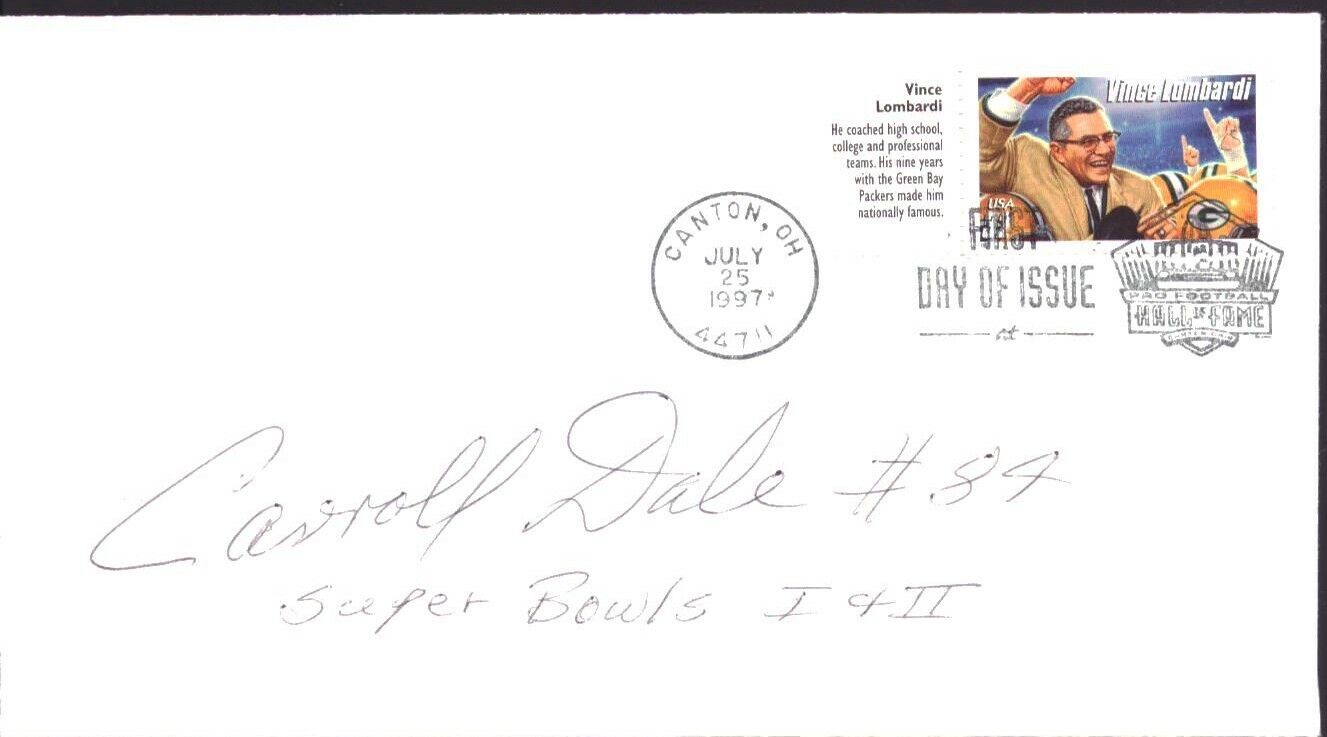 Vince
Lombardi
He coached high school,
college and professional
teams. His nine years
with the Green Bay
Packers made him
nationally famous.
Vince Lombardi
USA
G
CANTON, OH
JULY
25
1997
44711
FIRST
DAY OF ISSUE
at
PRO FOOTBALL
HALL OF FAME
Carroll Dale #84
Super Bowls I & II